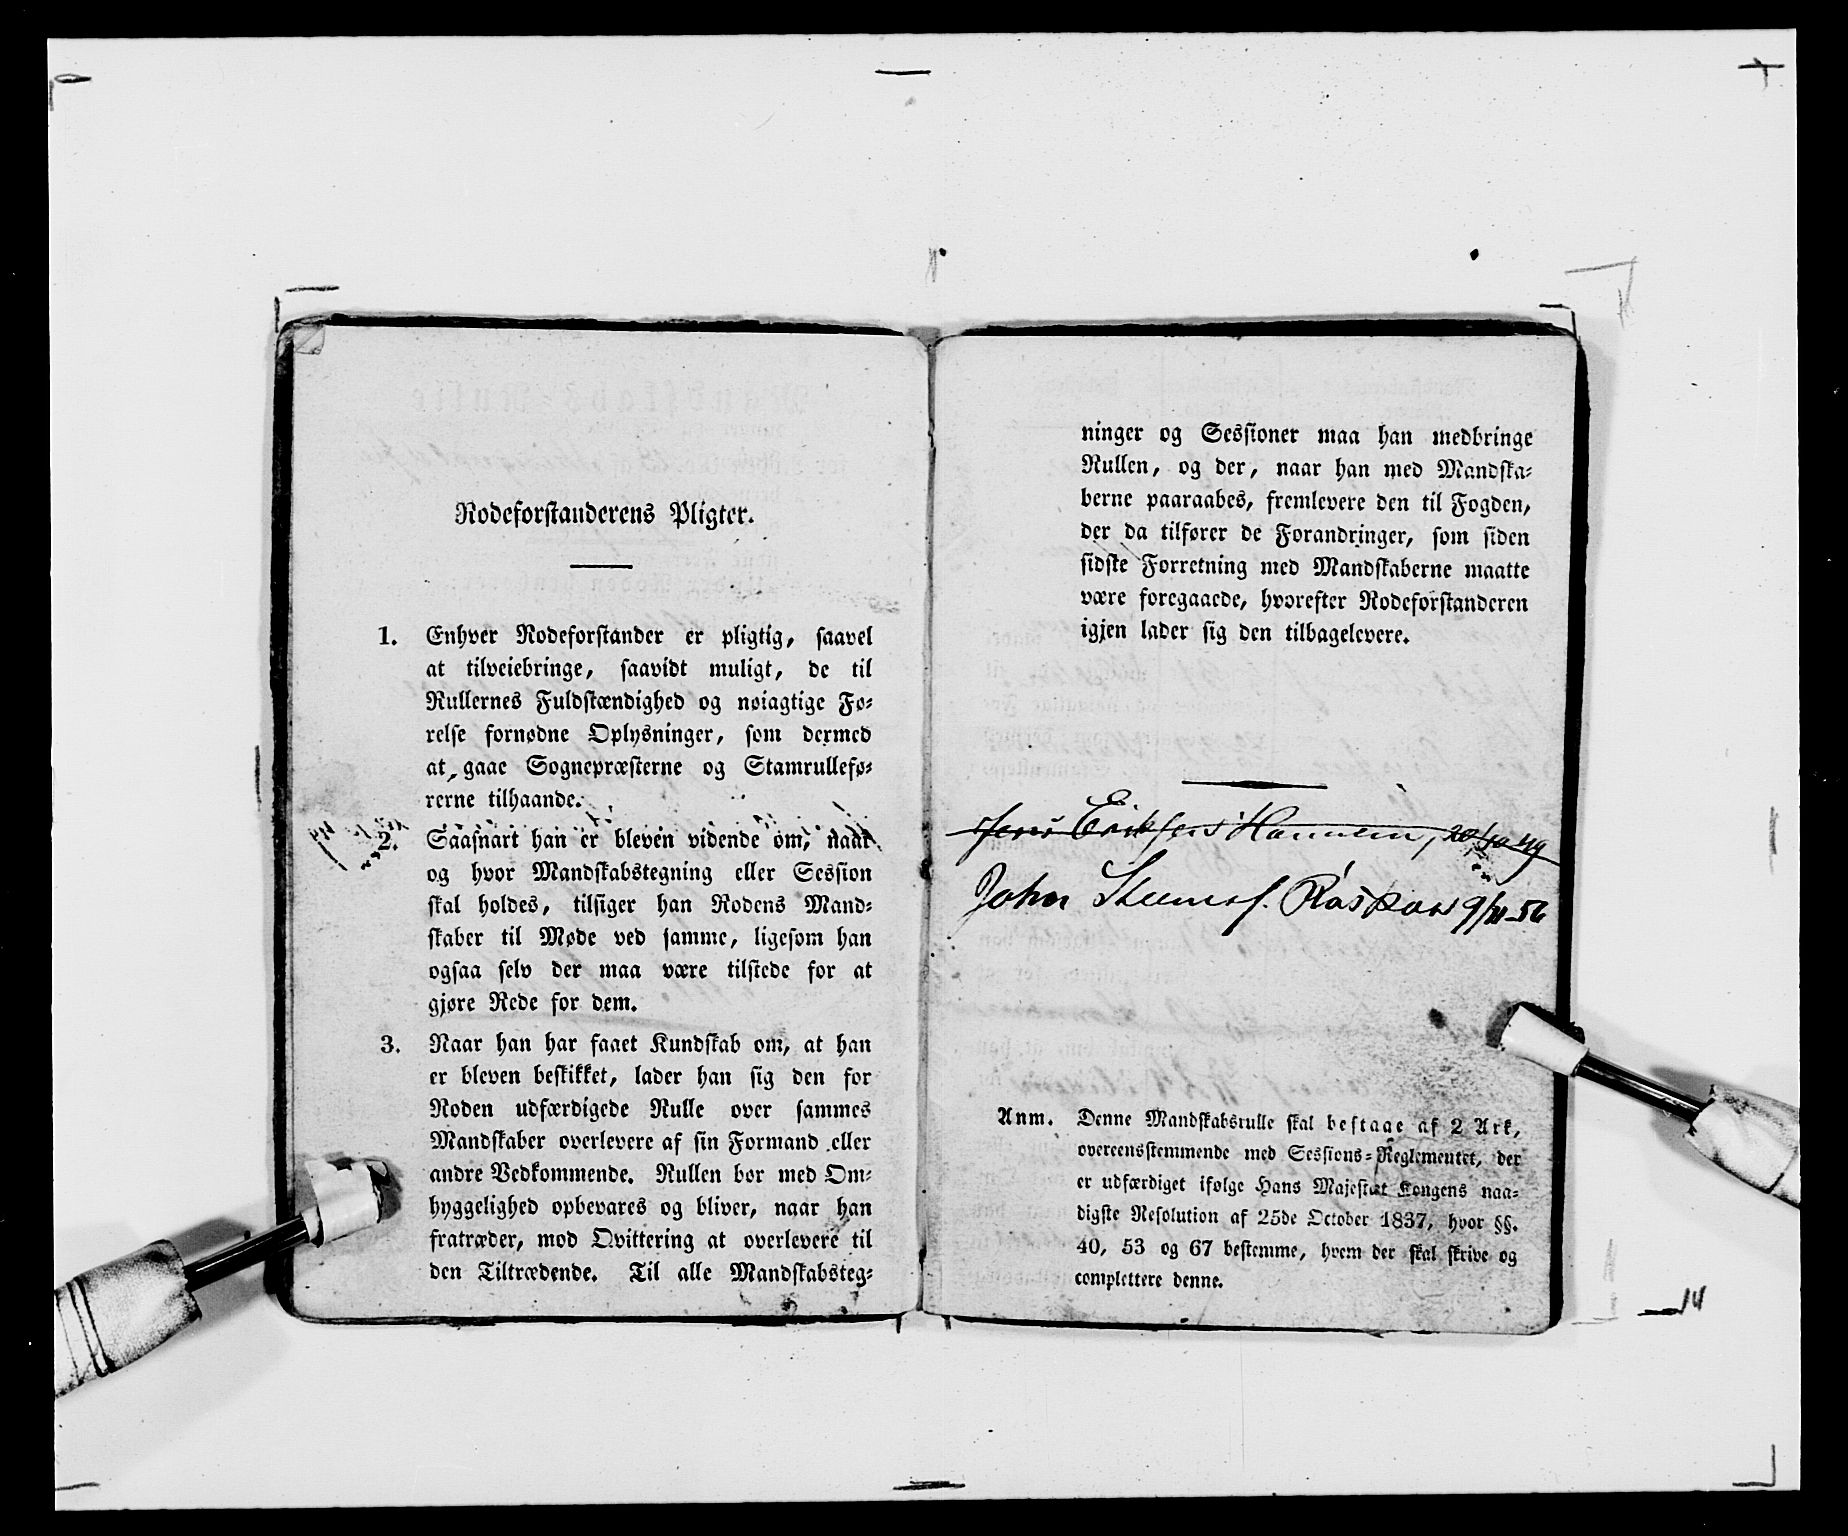 Rodeforstanderens Pligter.
1. Enhver Rodeforstander er pligtig, saavel
at tilveiebringe, saavidt muligt, de til
Rullernes Fuldstændighed og nøiagtige Fø-
relse fornødne Oplysninger, som dermed
at gaae Sognepræsterne og Stamrullefø-
rerne tilhaande.
2. Saasnart han er bleven vidende om, naar
og hvor Mandskabstegning eller Session
skal holdes, tilsiger han Rodens Mand-
skaber til Møde ved samme, ligesom han
ogsaa selv der maa være tilstede for at
gjøre Rede for dem.
3. Naar han har faaet Kundskab om, at han
er bleven beskikket, lader han sig den for
Roden udfærdigede Rulle over sammes
Mandskaber overlevere af sin Formand eller
andre Vedkommende. Rullen bør med Om-
hyggelighed opbevares og bliver, naar han
fratræder, mod Qvittering at overlevere til
den Tiltrædende. Til alle Mandskabsteg-
ninger og Sessioner maa han medbringe
Rullen, og der, naar han med Mandska-
berne paaraabes, fremlevere den til Fogden,
der da tilfører de Forandringer, som siden
sidste Forretning med Mandskaberne maatte
være foregaaede, hvorefter Rodeforstanderen
igjen lader sig den tilbagelevere.
Jens Eriksen
John 9/11-56
Anm. Denne Mandskabsrulle skal bestaae af 2 Ark,
overeensstemmende med Sessions-Reglementet, der
er udfærdiget ifølge Hans Majestæt Kongens naa-
digste Resolution af 25de October 1837, hvor §§.
40, 53 og 67 bestemme, hvem der skal skrive og
complettere denne.
14